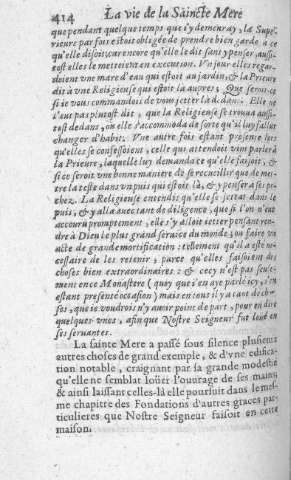 414 La vie de la Saincte Mere
que pendant quelque temps que i'y demeuray, la Supe-
rieure par fois estoit obligée de prendre bien garde a ce
qu'elle disoit, car encore qu'elle le dit sans y penser aussi-
tost elles le mettoient en execution. Vn iour elles regar-
doient vne mare d'eau qui estoit au jardin, & la Prieure
dit à vne Religieuse qui estoit la aupres, Que seroit-ce
si ie vous commandois de vous jetter là dedans. Elle ne
l'eut pas plutost dit, que la Religieuse se trouva aussi-
tost dedans, on elle l'accommoda de sorte qu'il luy fallut
changer d'habit. Vne autre fois estant
qu'elles se confessoient, celle qui attendoit vint parler à
la Prieure, laquelle luy demanda ce qu'elle faisoit, &
si ce seroit vne bonne maniere de se recueillir que de met-
tre la teste dans vn puis qui estoit là, & y penser a ses pe-
chez. La Religieuse entendit qu'elle se jettat dans le
puis, & y alla avec tant de diligence, que si l'on n'eut
accouru promptement, elle s'y alloit jetter pensant ren-
dre à Dieu le plus grand service du monde, ou faire vn
acte de grande mortification: tellement qu'il a esté ne-
cessaire de les retenir, parce qu'elles faisoient des
choses bien extraordinaires: & cecy n'est pas seule-
ment en ce Monastere (quoy que i'en aye parlé icy, i'en
estant presente occasion) mais en tous il y a tant de cho-
ses, que ie voudrois n'y avoir point de part, pour en dire
quelques vnes, afin que Nostre Seigneur fut loüé en
ses servantes.
La sainte Mere a passé sous silence plusieurs
autres choses de grand exemple, & d'vne edifica-
tion notable, craignant par sa grande modestie
qu'elle ne semblat loüer l'ouvrage de ses mains;
& ainsi laissant celles-là elle poursuit dans le mes-
me chapitre des Fondations d'autres graces par-
ticulieres que Nostre Seigneur faisoit en cette
maison.